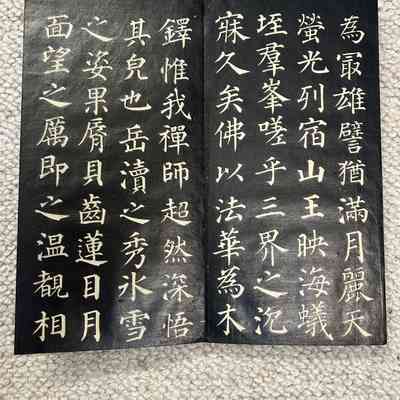 為㝡雄譬猶滿月麗天
螢光列宿山王映海蟻
垤羣峯嗟乎三界之沉
寐久矣佛以法華為木
鐸惟我禪師超然深悟
其皃也岳瀆之秀氷雪
之姿果脣貝齒蓮目月
面望之厲即之温覩相